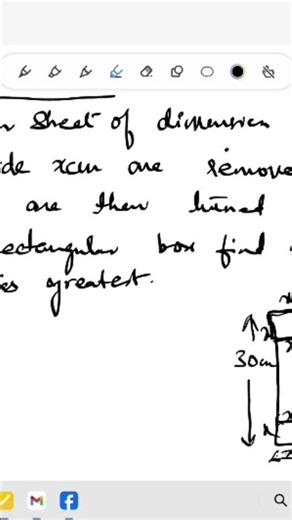 Sheet of dimension
xcm are remove
are then turned
ectangular box find
greatest.
x
x
30cm
x
x